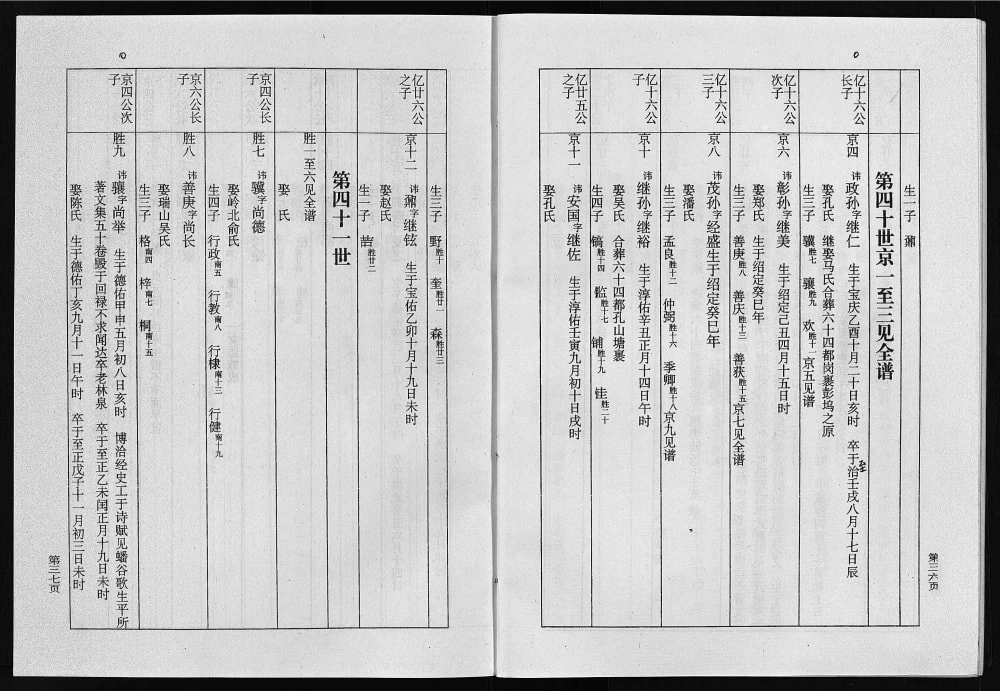 生一子 鼐
第四十世京一至三见全谱
亿十六公长子
京四 讳政孙字继仁 生于宝庆乙酉十月二十日亥时 卒于治至壬戌八月十七日辰
娶孔氏 继娶马氏合葬六十四都岗裹彭坞之原
生三子 骥胜七 骧胜九 欢胜十一京五见谱
亿十六公次子
京六 讳彰孙字继美 生于绍定己丑四月十五日时
娶郑氏 生于绍定癸巳年
生三子 善庚胜八 善庆胜十三 善获胜十五京七见全谱
亿十六公三子
京八 讳茂孙字经盛生于绍定癸巳年
娶潘氏
生三子 孟良胜十二 仲弼胜十六 季卿胜十八京九见谱
亿十六公子
京十 讳继孙字继裕 生于淳佑辛丑正月十四日午时
娶吴氏 合葬六十四都孔山塘裹
生四子 镐胜十四 监胜十七 铺胜十九 铚胜二十
亿廿五公之子
京十一 讳安国字继佐 生于淳佑壬寅九月初十日戌时
娶孔氏
第三六页
生三子 野胜十 奎胜廿一 森胜廿三
亿廿六公之子
京十二 讳鼐字继铉 生于宝佑乙卯十月十九日未时
娶赵氏
生一子 喆胜廿二
第四十一世
胜一至六见全谱
娶 氏
京四公长子
胜七 讳骥字尚德
娶岭北俞氏
生四子 行政南五 行教南八 行棣南十三 行健南十九
京六公长子
胜八 讳善庚字尚长
娶瑞山吴氏
生三子 格南四 梓南七 桐南十五
京四公次子
胜九 讳骧字尚举 生于德佑甲申五月初八日亥时 博洽经史工于诗赋见蟠谷歌生平所
著文集五十卷毁于回禄不求闻达卒老林泉 卒于至正乙未闰正月十九日未时
娶陈氏 生于德佑丁亥九月十一日午时 卒于至正戊子十一月初三日未时
第三七页